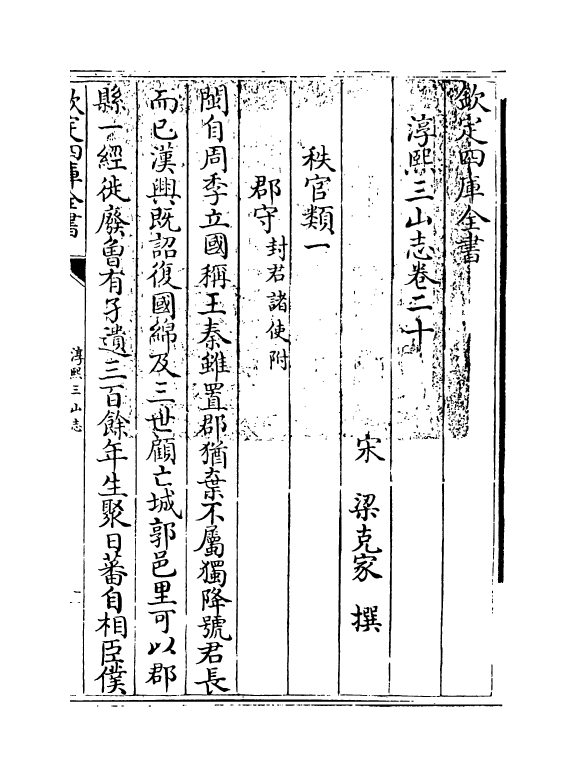 欽定四庫全書
淳熙三山志卷二十
宋 梁克家 撰
秩官類一
郡守封君諸使附
閩自周季立國稱王秦雖置郡猶棄不屬獨降號君長
而已漢興既詔復國綿及三世顧亡城郭邑里可以郡
縣一經徙廢魯有孑遺三百餘年生聚日蕃自相臣僕
欽定四庫全書
淳熙三山志